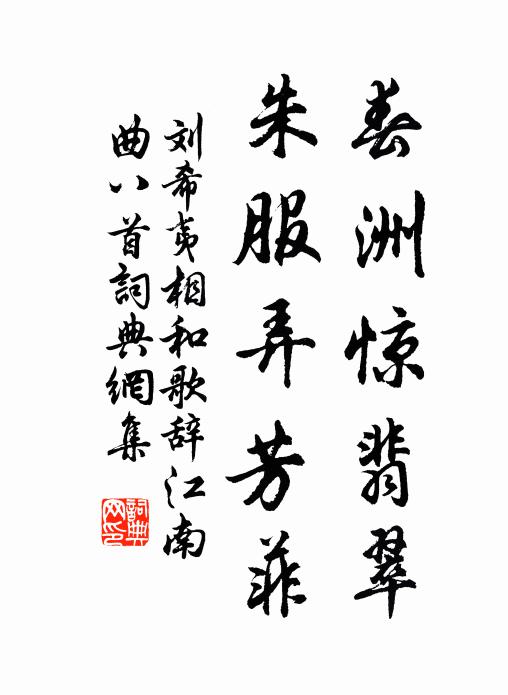 春洲惊翡翠
朱服弄芳菲
刘希夷相和歌辞江南
曲八首詞典網集
詞典
网印